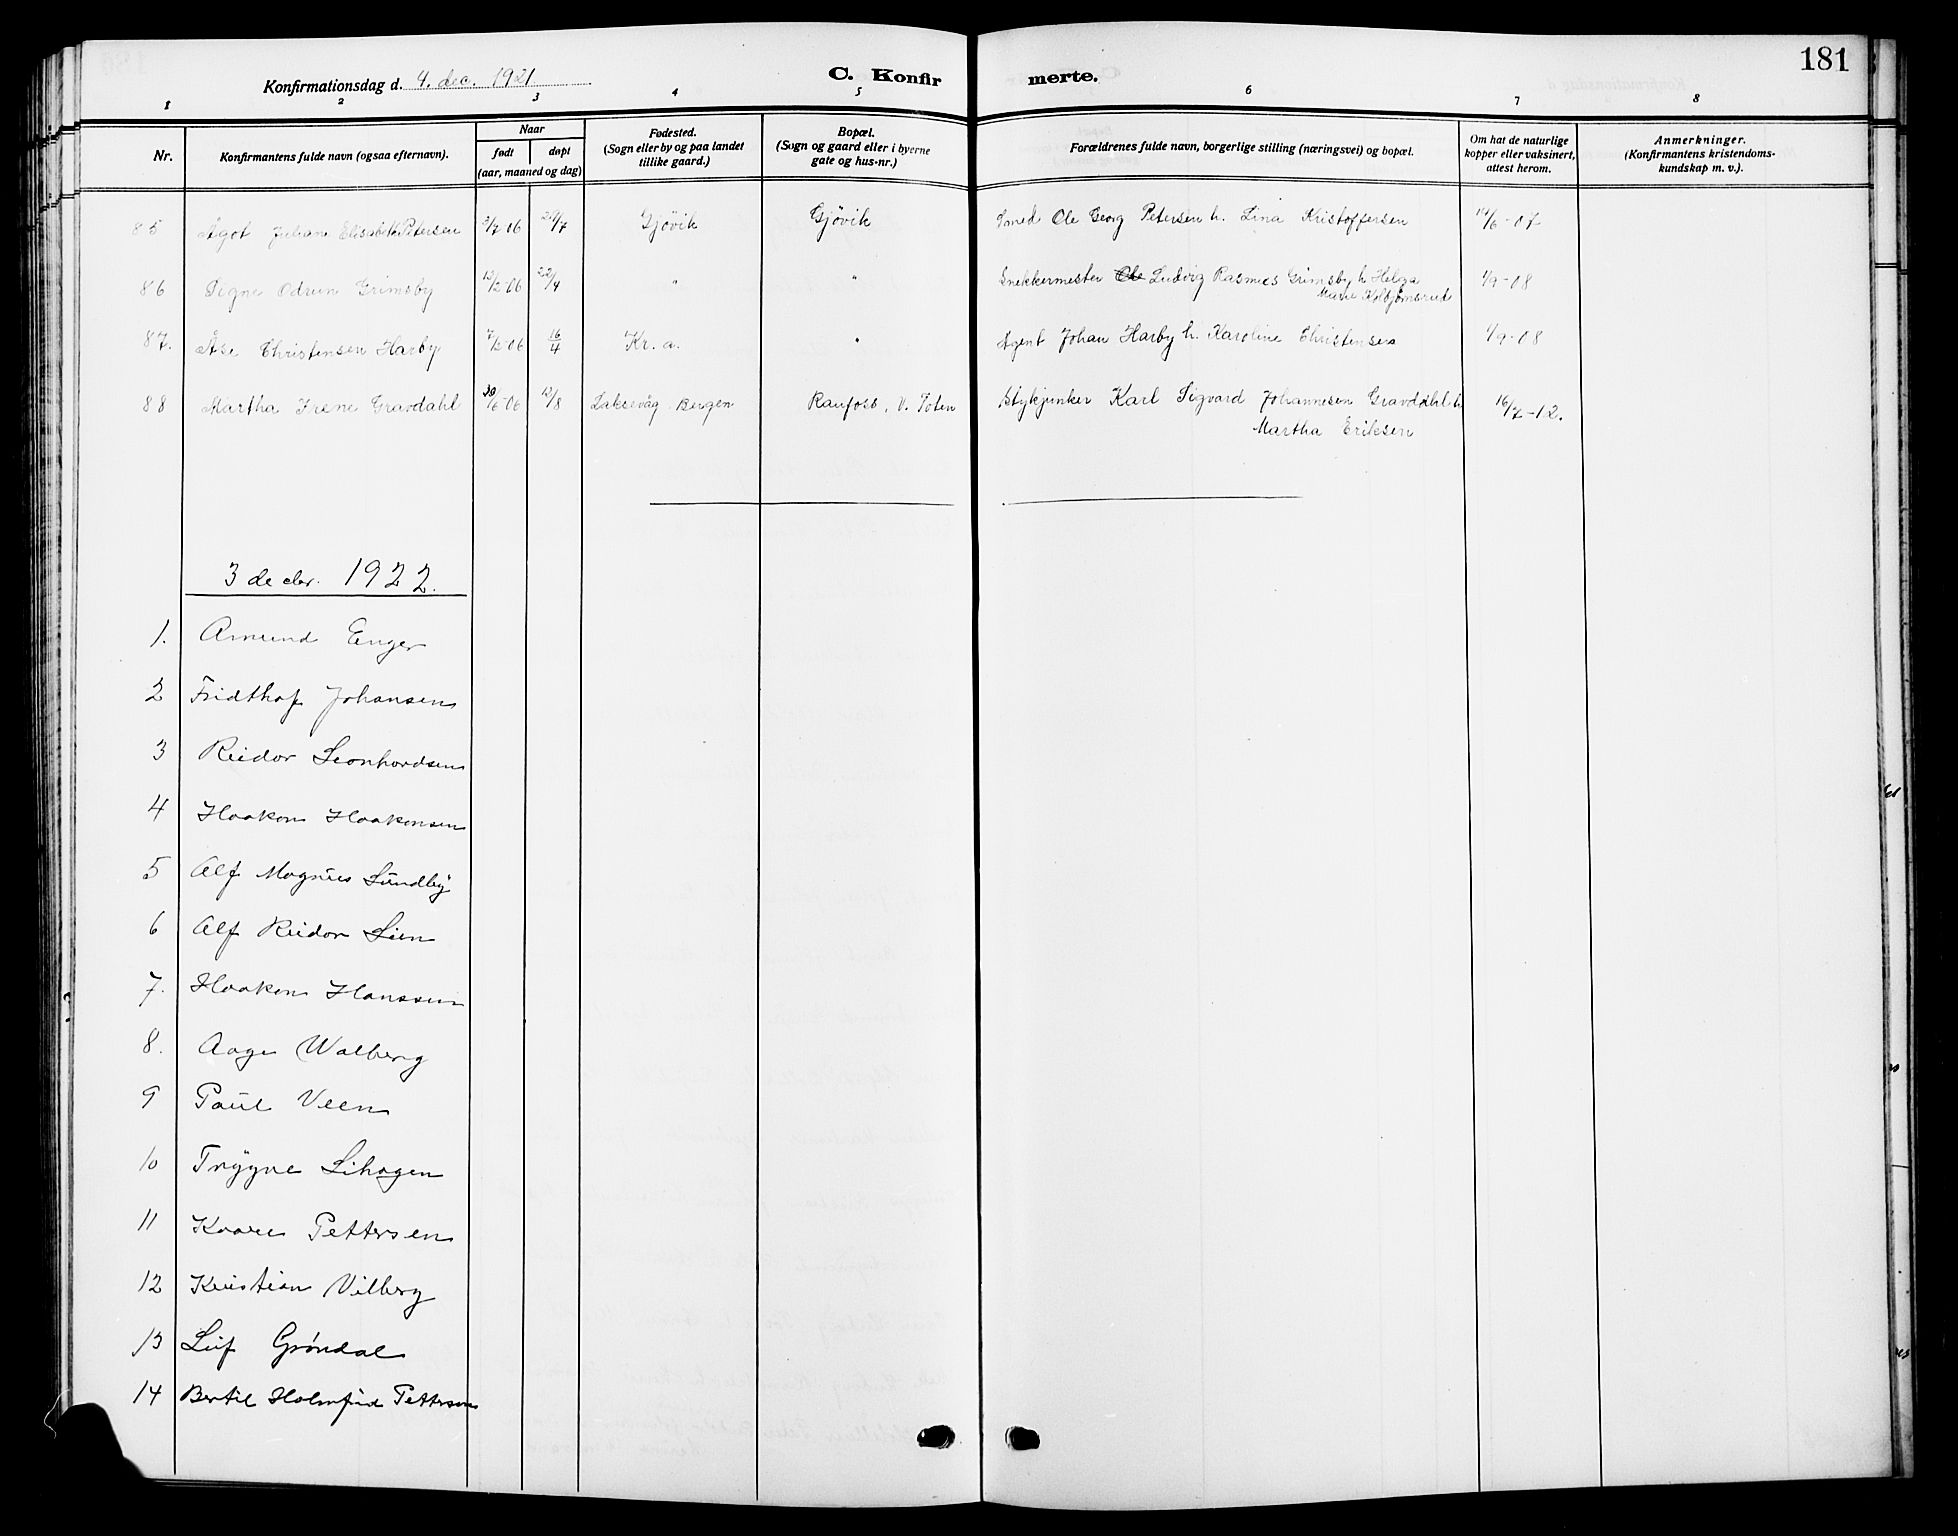 181
Konfirmationsdag d. 4. dec. 1921.
C. Konfirmerte.
1 2 3 4 5 6 7 8
Nr.
Konfirmantens fulde navn (ogsaa efternavn).
Naar
født døpt
(aar, maaned og dag)
Fødested.
(Sogn eller by og paa landet
tillike gaard.)
Bopæl.
(Sogn og gaard eller i byerne
gate og hus-nr.)
Forældrenes fulde navn, borgerlige stilling (næringsvei) og bopæl.
Om hat de naturlige
kopper eller vaksinert,
attest herom.
Anmerkninger.
(Konfirmantens kristendoms-
kundskap m. v.).
85 Ågot Juliane Elisabeth Petersen 3/7 06 Gjøvik Gjøvik Smed Ole Georg Petersen h. Lina Kristoffersen 14/6-07
86 Signe Odrun Grimsby 13/2 06 22/4 " " Snekkermester Ole Ludvig Rasmus Grimsby h Helga 1/9-08
Marie
87. Åse Christensen Harby 7/2-06 16/4 Kr. a. " Agent Johan Harby h. Karoline Christensen 1/9-08
88 Martha Irene Gravdahl 30/6-06 12/8 Laksevåg Bergen Raufoss, V. Toten Stykjunker Karl Sigvard Johannesen Gravdahl h 16/7-12.
Martha Eriksen
3 decbr. 1922.
1. Amund Enger
2 Fridthof Johansen
3 Reidar Leonhardsen
4 Haakon Haakonsen
5 Alf Magnus Lundby
6 Alf Reidar Lien
7. Haakon Hanssen
8. Aage Walberg
9 Paul Veen
10 Trygve Lihagen
11 Kaare Pettersen
12 Kristian Vilberg
13 Leif Grøndal
14 Bertil Holmfrid Pettersen